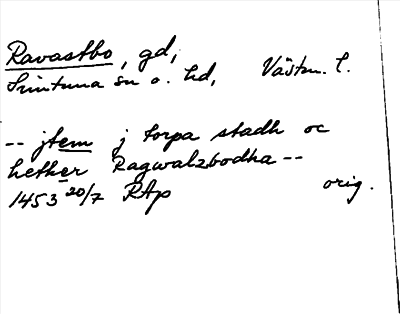 Ravastbo, gd,
Simtuna sn o. hd, Västm. l.
-- jtem j torpa stadh oc
hether Ragwalzbodha --
1453 20/7 RAp orig.